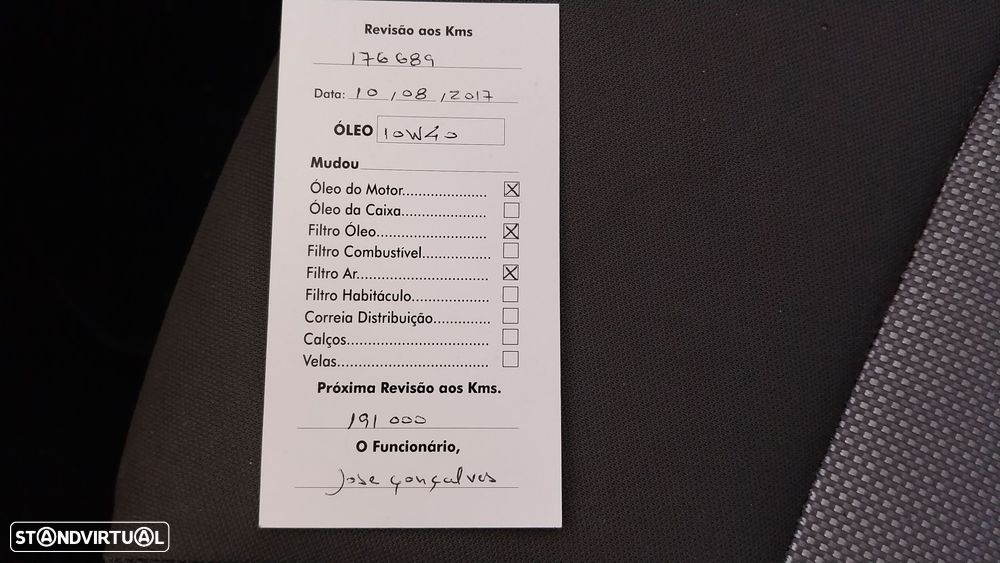 Revisão aos Kms
176689
Data: 10/08/2017
ÓLEO 10W40
Mudou
Óleo do Motor.................... X
Óleo da Caixa....................
Filtro Óleo.......................... X
Filtro Combustível................
Filtro Ar............................... X
Filtro Habitáculo..................
Correia Distribuição.............
Calços.................................
Velas...................................
Próxima Revisão aos Kms.
191 000
O Funcionário,
Jose gonçalves
STANDVIRTUAL